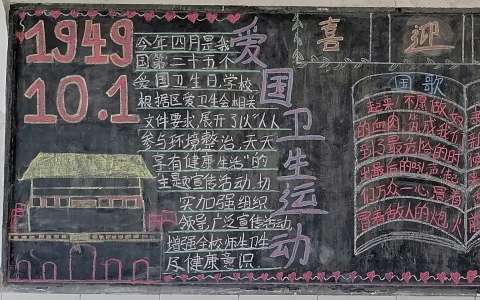 1949
10.1
今年四月是我
国第二十五个
爱国卫生月,学校
根据区爱卫会相关
文件要求展开了以“人人
参与环境整治,天天
享有健康生活”的
主题宣传活动,切
实加强组织
领导,广泛宣传活动,
增强全校师生卫生
及健康意识
爱国卫生运动
喜迎
国歌
起来 不愿做
的血肉 筑成我们
到了最危险的时
出最后的吼声
们万众一心 冒着
冒着敌人的炮火